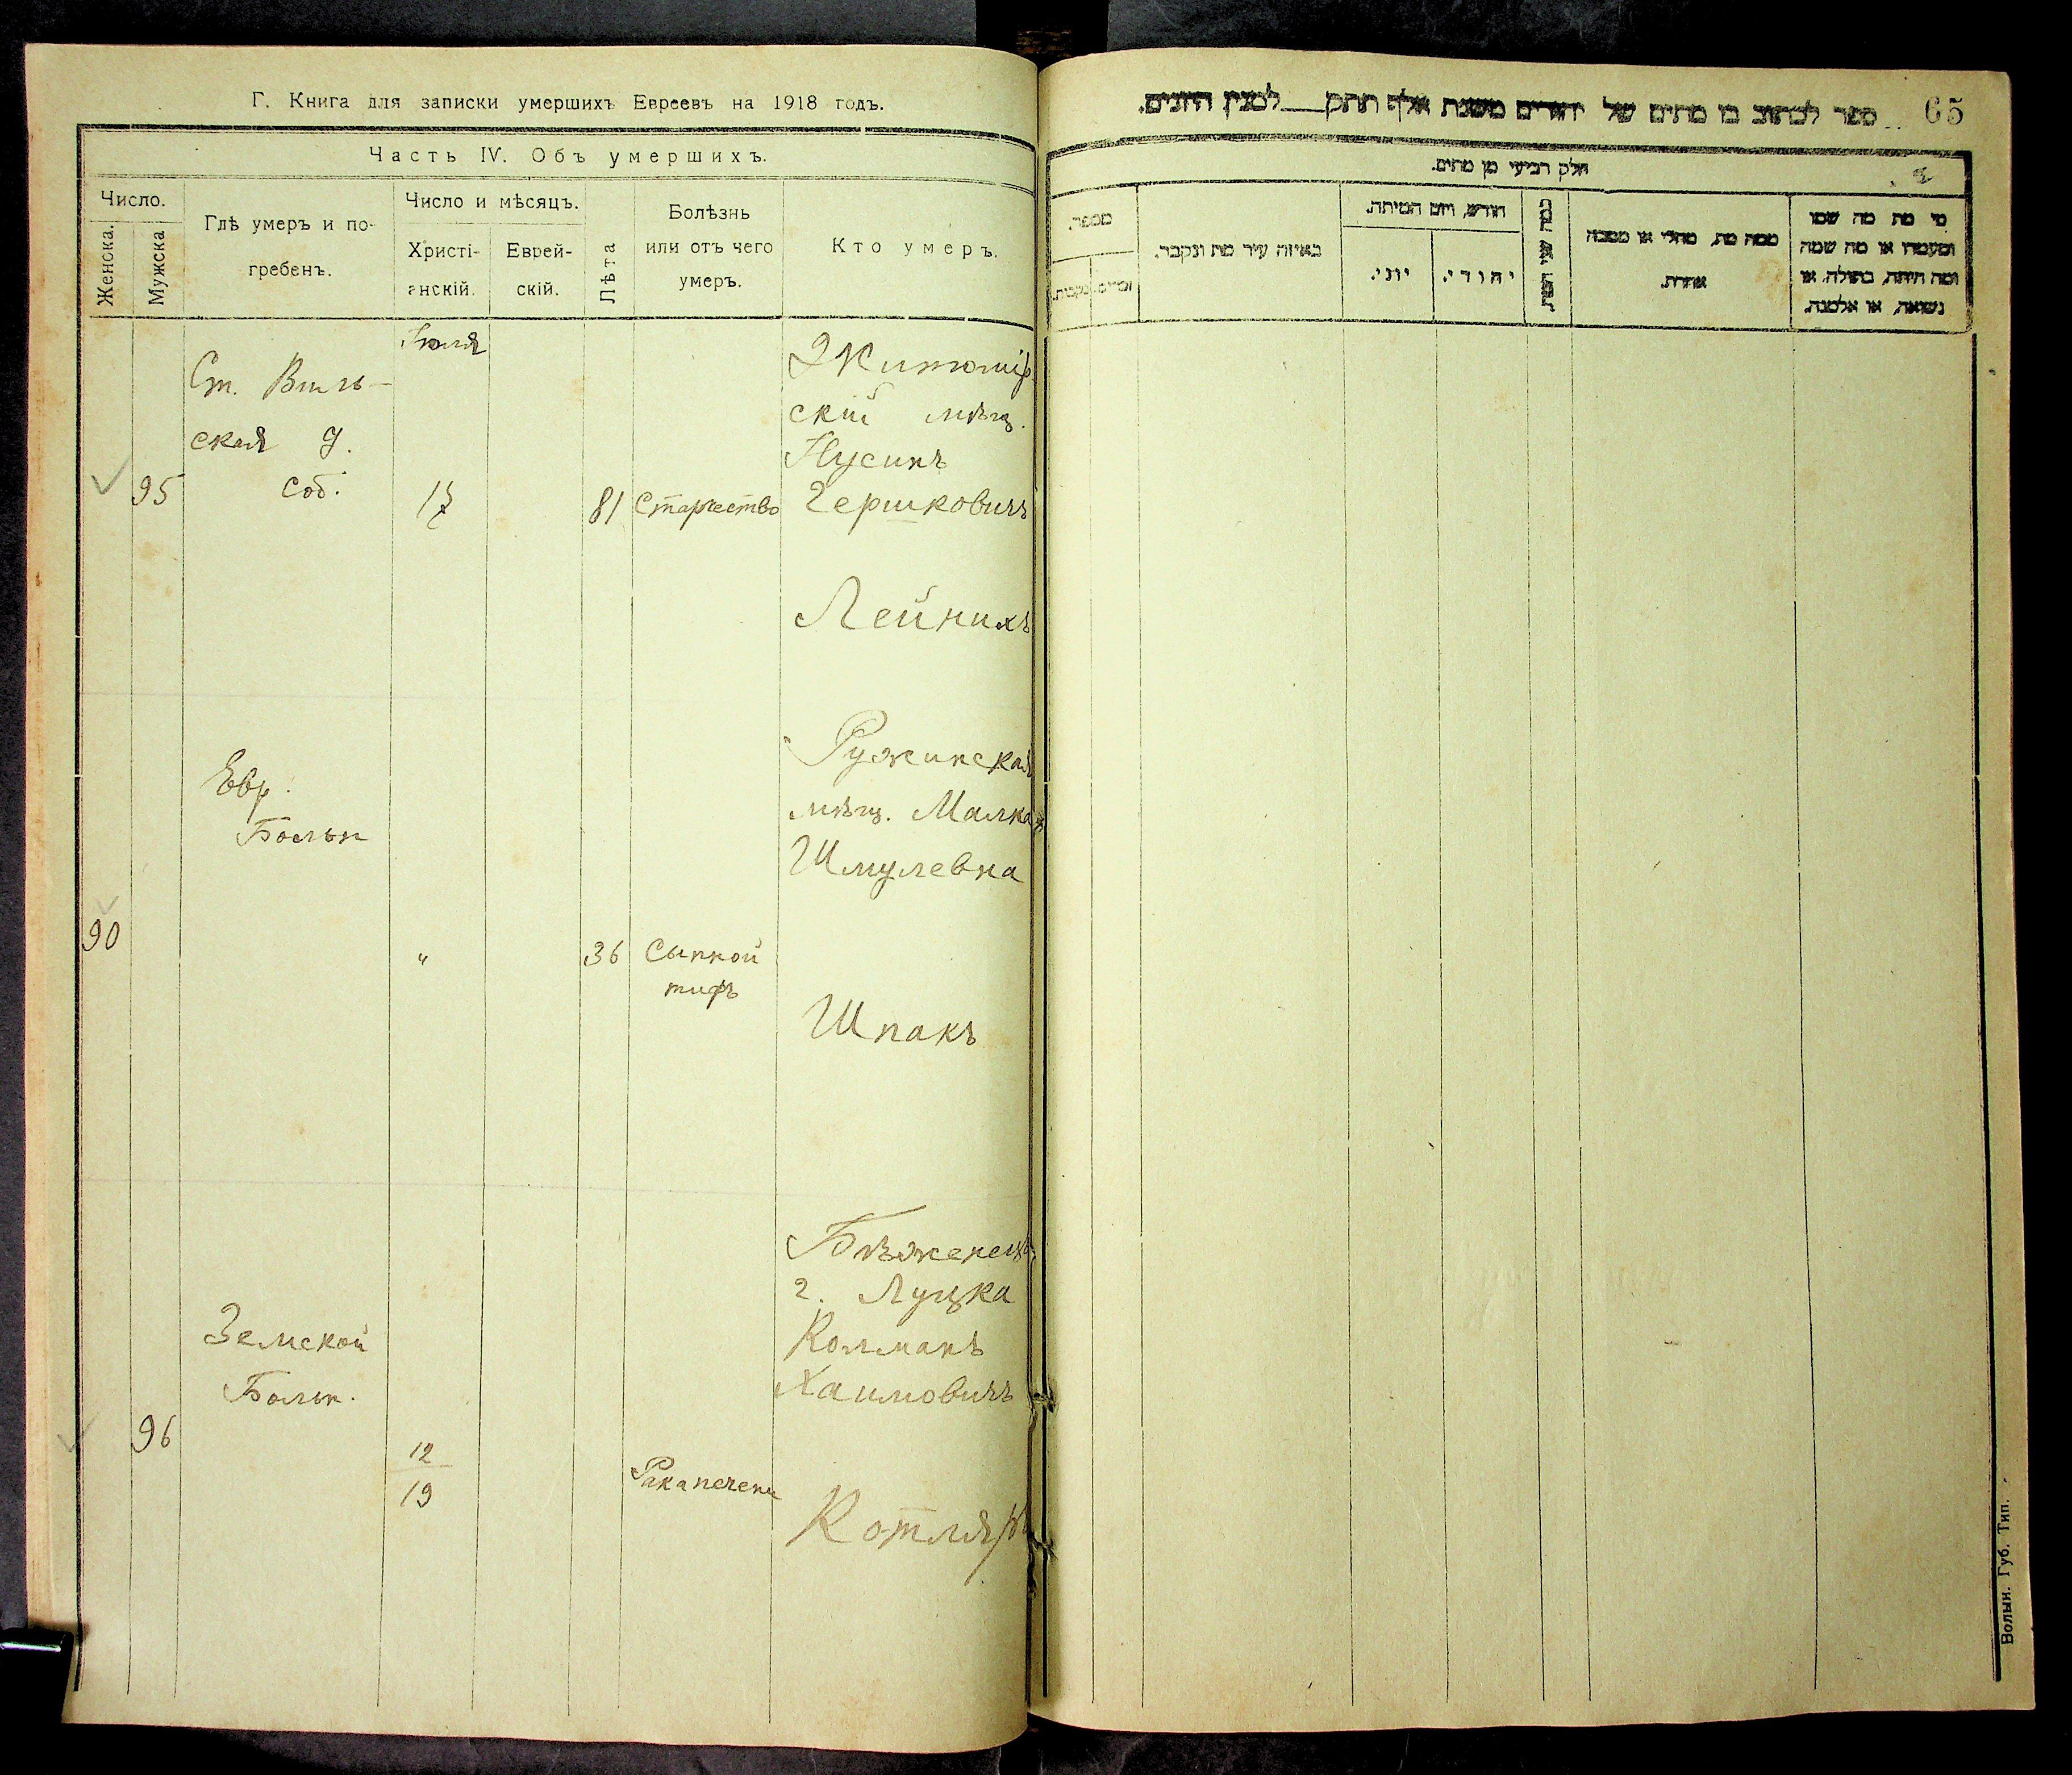 Г. Книга для записки умершихъ Евреевъ на 1918 годъ.
Часть IV. Объ умершихъ.
Число.
Женска.
Мужска
Глѣ умеръ и по-
гребенъ.
Число и мѣсяцъ.
Христі-
анскій.
Еврей-
скій.
Лѣта
Болѣзнь
или отъ чего
умеръ.
Кто умеръ.
Іюля
Ст. Виль-
ская У.
соб.
95
17
81
Старчество
Житомір
скій мѣщ.
Нусинъ
Гершковичъ
Лейнихъ
Евр.
Больн
90
"
36
Сыпной
тифъ
Ружинская
мѣщ. Малка
Шмулевна
Шпакъ
Земской
Больн.
96
12
19
Рака печени
Бѣженецъ
г. Луцка
Колманъ
Хаимовичъ
Котляръ
65
ספר לכתוב בו מתים של יהודים משנת אלף תתק___למנין היונים.
חלק רביעי מן מתים.
מספר.
זכרים.
נקבות.
באיזה עיר מת ונקבר.
חודש, ויום המיתה.
יוני.
יהודי.
ממה מת, מחלי או מסבה
אחרת.
מי מת מה שמו
ומעמדו או מה שמה
ומה היתה, בתולה, או
נשואה, או אלמנה.
Волын. Губ. Тип.